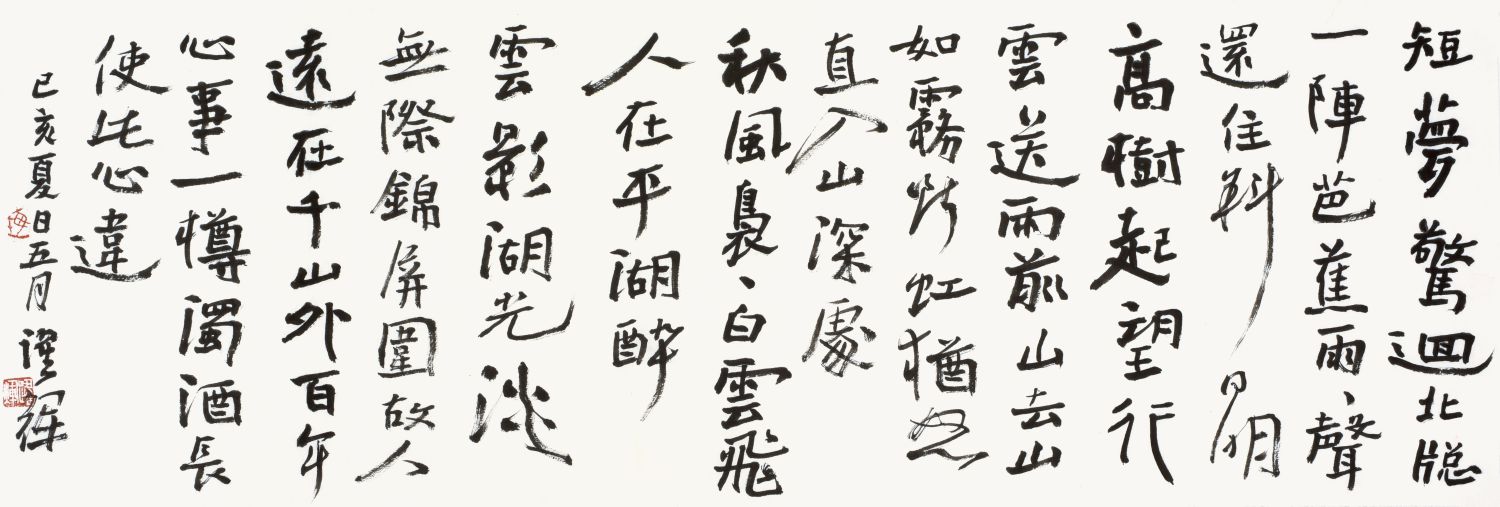 短夢驚迴北牕
一陣芭蕉雨、聲
還住斜日明
高樹起望行
雲送雨前山去山
如霧斷虹猶怒
直入山深處
秋風裊、白雲飛
人在平湖醉
雲影湖光淡
無際錦屏圍故人
遠在千山外百年
心事一樽濁酒長
使此心違
己亥夏日五月